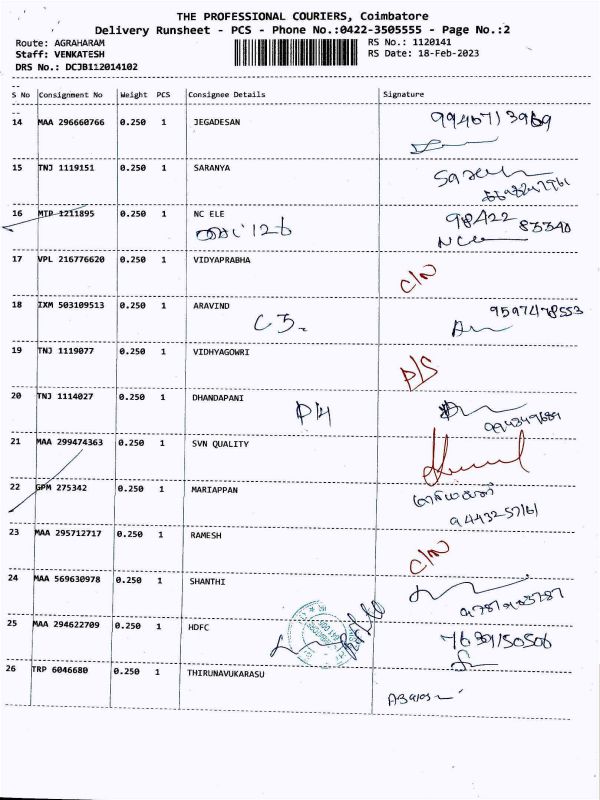 THE PROFESSIONAL COURIERS, Coimbatore
Delivery Runsheet - PCS - Phone No.:0422-3505555 - Page No.:2
Route: AGRAHARAM
RS No.: 1120141
Staff: VENKATESH
RS Date: 18-Feb-2023
DRS No.: DCJBI12014102
--
S No Consignment No Weight PCS Consignee Details Signature
--
14 MAA 296660766 0.250 1 JEGADESAN
15 TNJ 1119151 0.250 1 SARANYA
16 MTP 1211895 0.250 1 NC ELE 98422
83340
17 VPL 216776620 0.250 1 VIDYAPRABHA C/N
18 IXM 503109513 0.250 1 ARAVIND 9597478553
19 TNJ 1119077 0.250 1 VIDHYAGOWRI P/S
20 TNJ 1114027 0.250 1 DHANDAPANI
21 MAA 299474363 0.250 1 SVN QUALITY
22 GPM 275342 0.250 1 MARIAPPAN
23 MAA 295712717 0.250 1 RAMESH C/N
24 MAA 569630978 0.250 1 SHANTHI
25 MAA 294622709 0.250 1 HDFC
26 TRP 6046680 0.250 1 THIRUNAVUKARASU